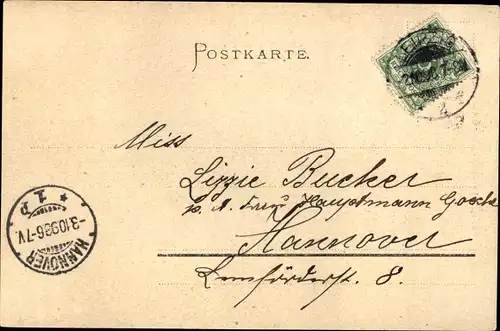 POSTKARTE.
Miss
Lizzie Bucker
p. A. Frau Hauptmann
Hannover
Lemförderst. 8.
HANNOVER
-3.10.98.6-7V.
* 1.P